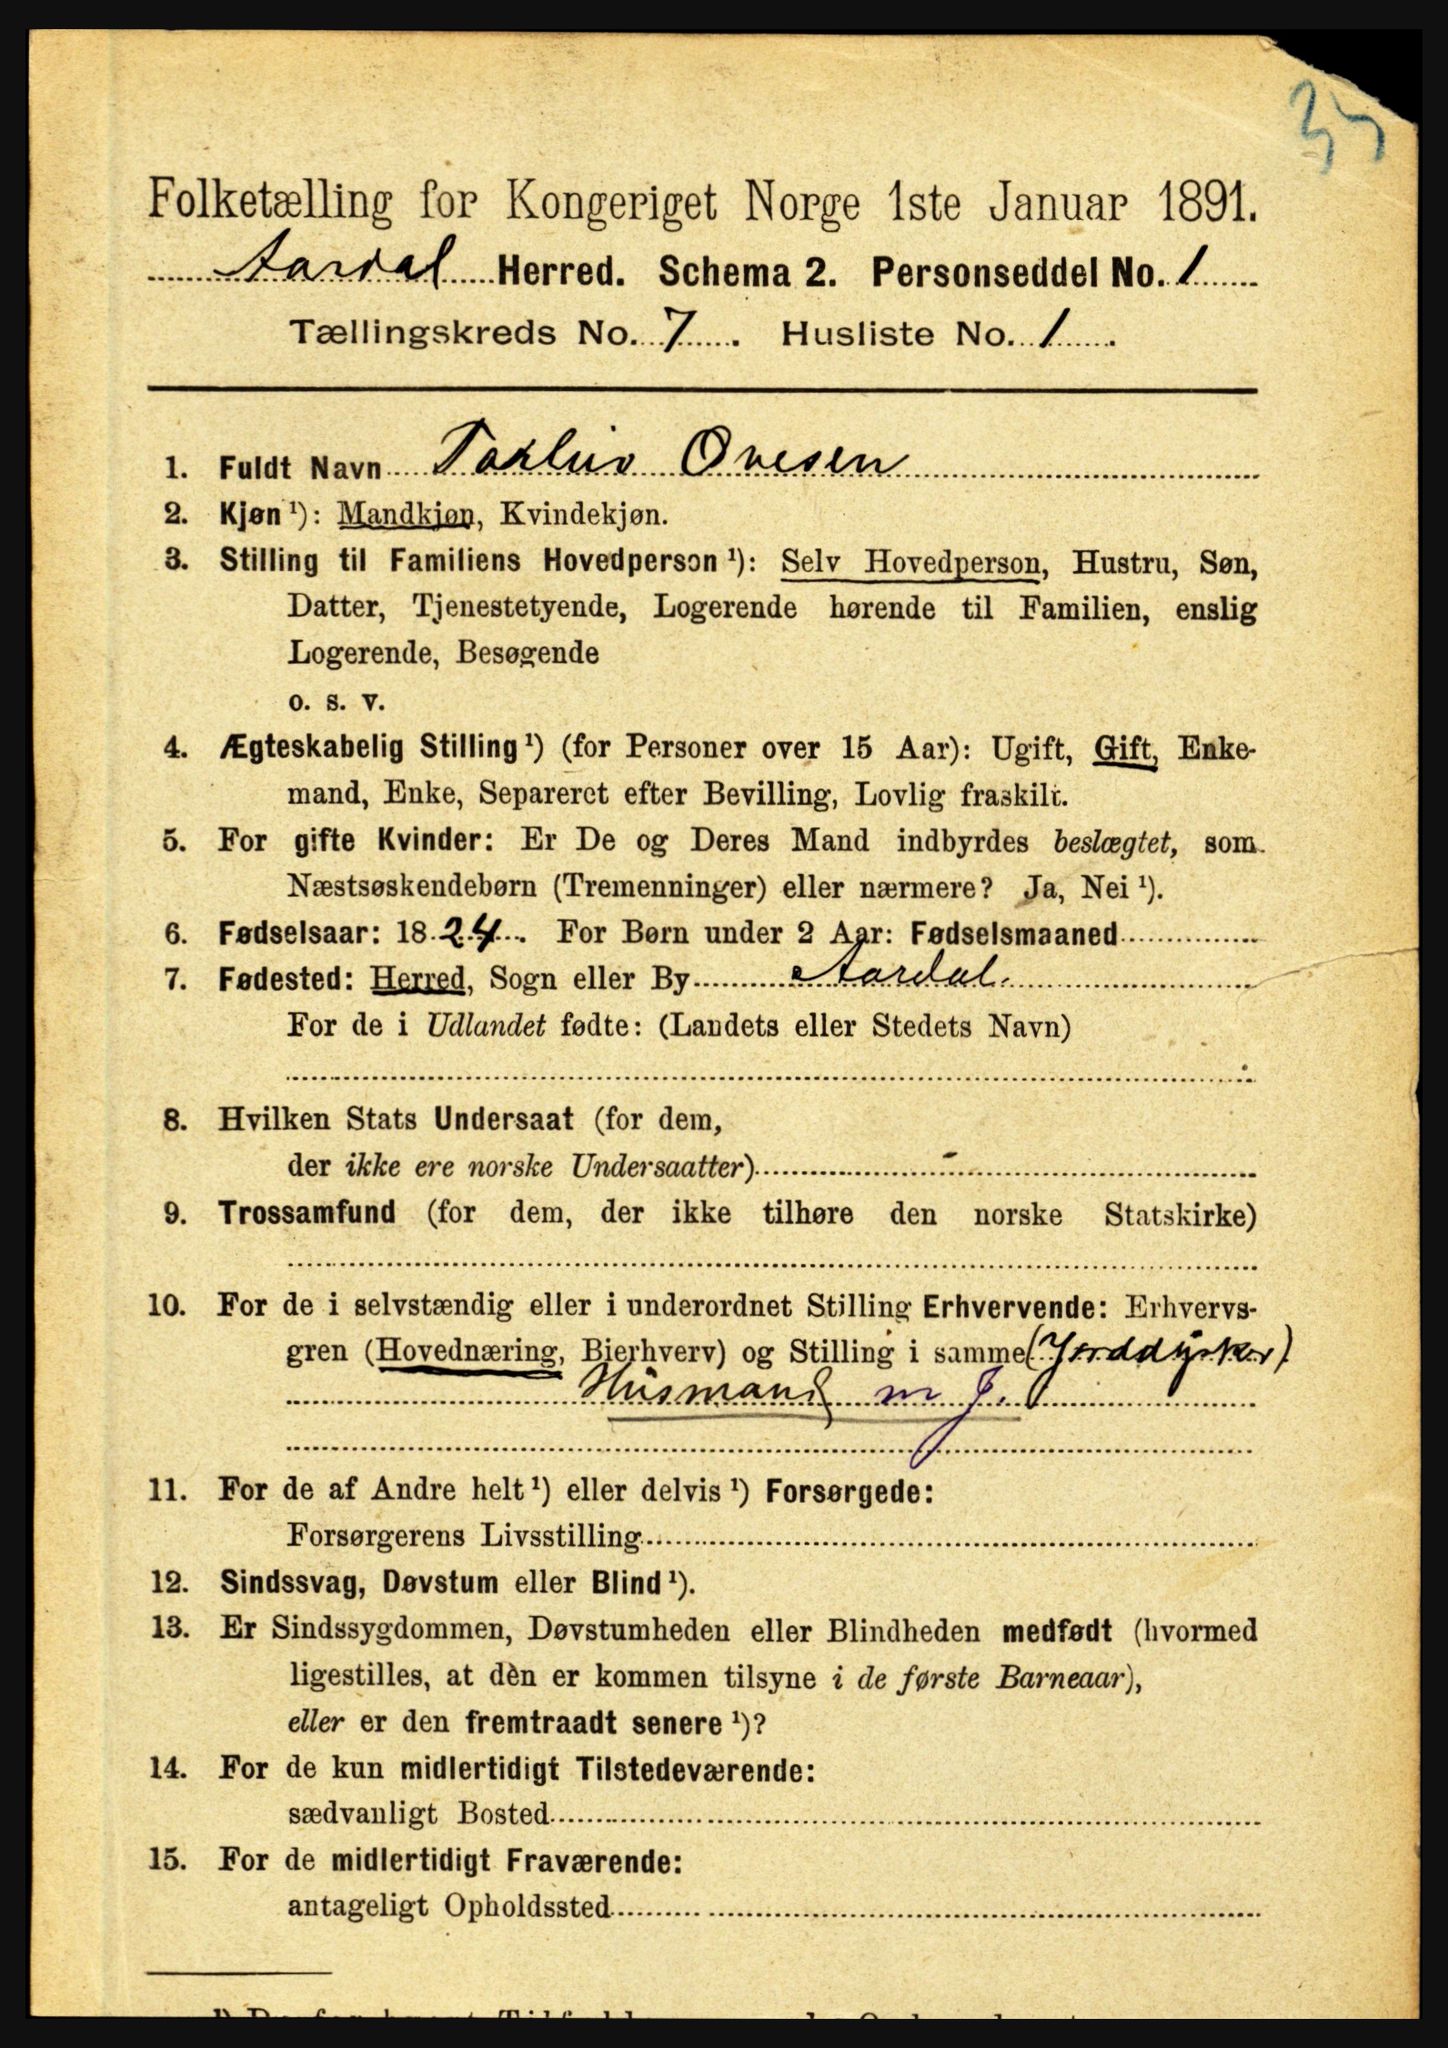 Folketælling for Kongeriget Norge 1ste Januar 1891.
Aardal Herred. Schema 2. Personseddel No. 1
Tællingskreds No. 7. Husliste No. 1.
1. Fuldt Navn Ovesen
2. Kjøn ¹): Mandkjøn, Kvindekjøn.
3. Stilling til Familiens Hovedperson ¹): Selv Hovedperson, Hustru, Søn,
Datter, Tjenestetyende, Logerende hørende til Familien, enslig
Logerende, Besøgende
o. s. v.
4. Ægteskabelig Stilling ¹) (for Personer over 15 Aar): Ugift, Gift, Enke-
mand, Enke, Separeret efter Bevilling, Lovlig fraskilt.
5. For gifte Kvinder: Er De og Deres Mand indbyrdes beslægtet, som
Næstsøskendebørn (Tremenninger) eller nærmere? Ja, Nei ¹).
6. Fødselsaar: 1824. For Børn under 2 Aar: Fødselsmaaned
7. Fødested: Herred, Sogn eller By Aardal
For de i Udlandet fødte: (Landets eller Stedets Navn)
8. Hvilken Stats Undersaat (for dem,
der ikke ere norske Undersaatter)
9. Trossamfund (for dem, der ikke tilhøre den norske Statskirke)
10. For de i selvstændig eller i underordnet Stilling Erhvervende: Erhvervs-
gren (Hovednæring, Bierhverv) og Stilling i samme (Jorddyrker)
Husmand m J.
11. For de af Andre helt ¹) eller delvis ¹) Forsørgede:
Forsørgerens Livsstilling
12. Sindssvag, Døvstum eller Blind ¹).
13. Er Sindssygdommen, Døvstumheden eller Blindheden medfødt (hvormed
ligestilles, at den er kommen tilsyne i de første Barneaar),
eller er den fremtraadt senere ¹)?
14. For de kun midlertidigt Tilstedeværende:
sædvanligt Bosted
15. For de midlertidigt Fraværende:
antageligt Opholdssted